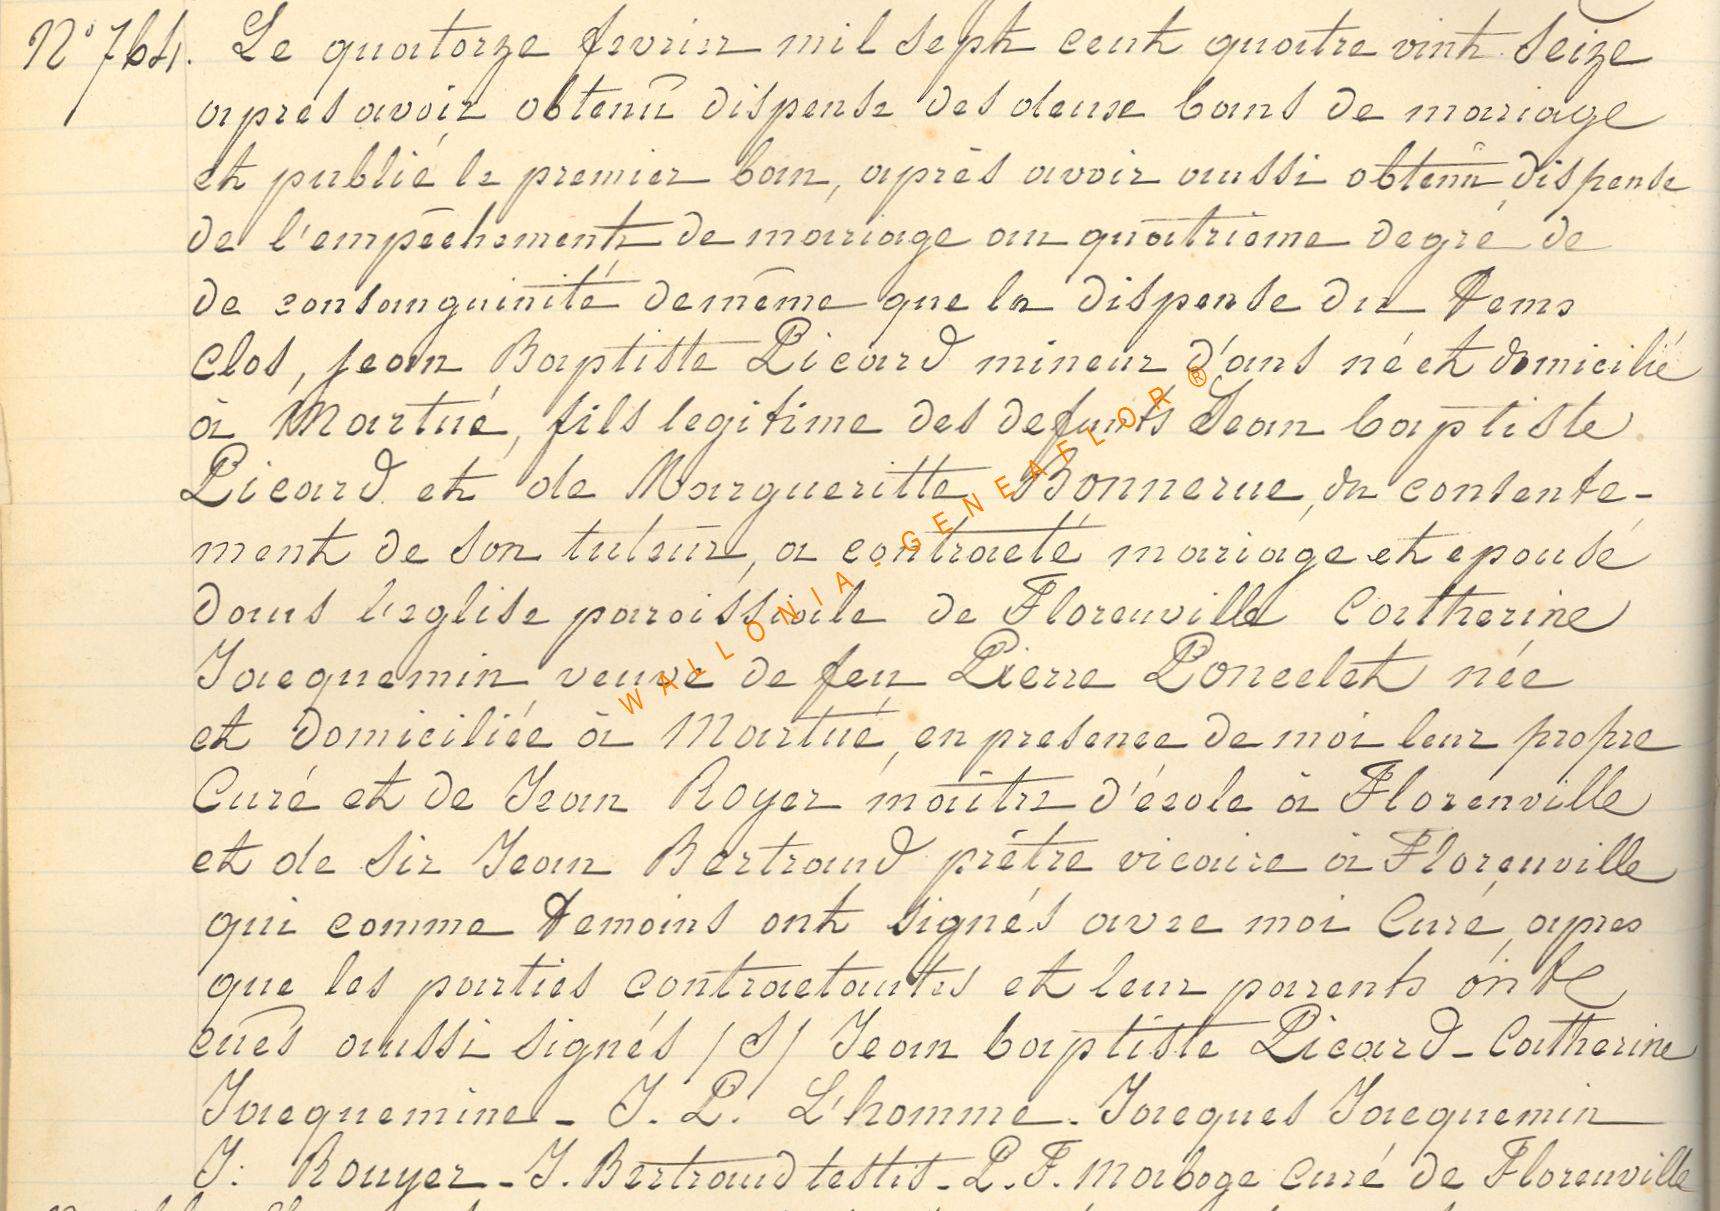 N° 764. Le quatorze fevrier mil sept cent quatre vint seize
apres avoir obtenu dispense des deux bans de mariage
et publié le premier ban, après avoir aussi obtenu dispense
de l'empêchement de mariage au quatrieme degré de
de consanguinité demême que la dispense du tems
clos, jean Baptiste Picard mineur d'ans né et domicilié
à Martué, fils legitime des defunts Jean baptiste
Picard et de Margueritte Bonnerue, du consente-
ment de son tuteur, a contracté mariage et epousé
dans l'eglise paroissiale de Florenville Catherine
Jacquemin veuve de feu Pierre Poncelet née
et domiciliée à Martué, en presence de moi leur propre
Curé et de Jean Royer maître d'école à Florenville
et de sir Jean Bertrand prêtre vicaire à Florenville
qui comme temoins ont signés avec moi Curé, apres
que les parties contractantes et leur parents ont
eues aussi signés (S) Jean baptiste Picard - Catherine
Jacquemine - J. P. L'homme - Jacques Jacquemin
J: Rouyer - J. Bertrand testis - P. F. Maboge curé de Florenville
WALLONIA - GENEAFLOR ®